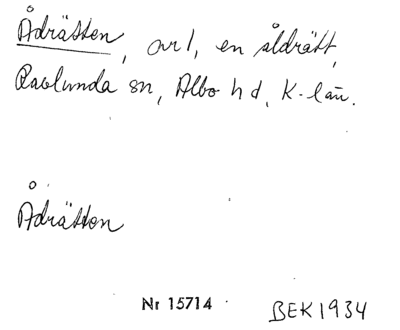 Ådrätten, avl, en åldrätt,
Ravlunda sn, Albo hd, K-län.
Ådrätten
Nr 15714 BEK 1934